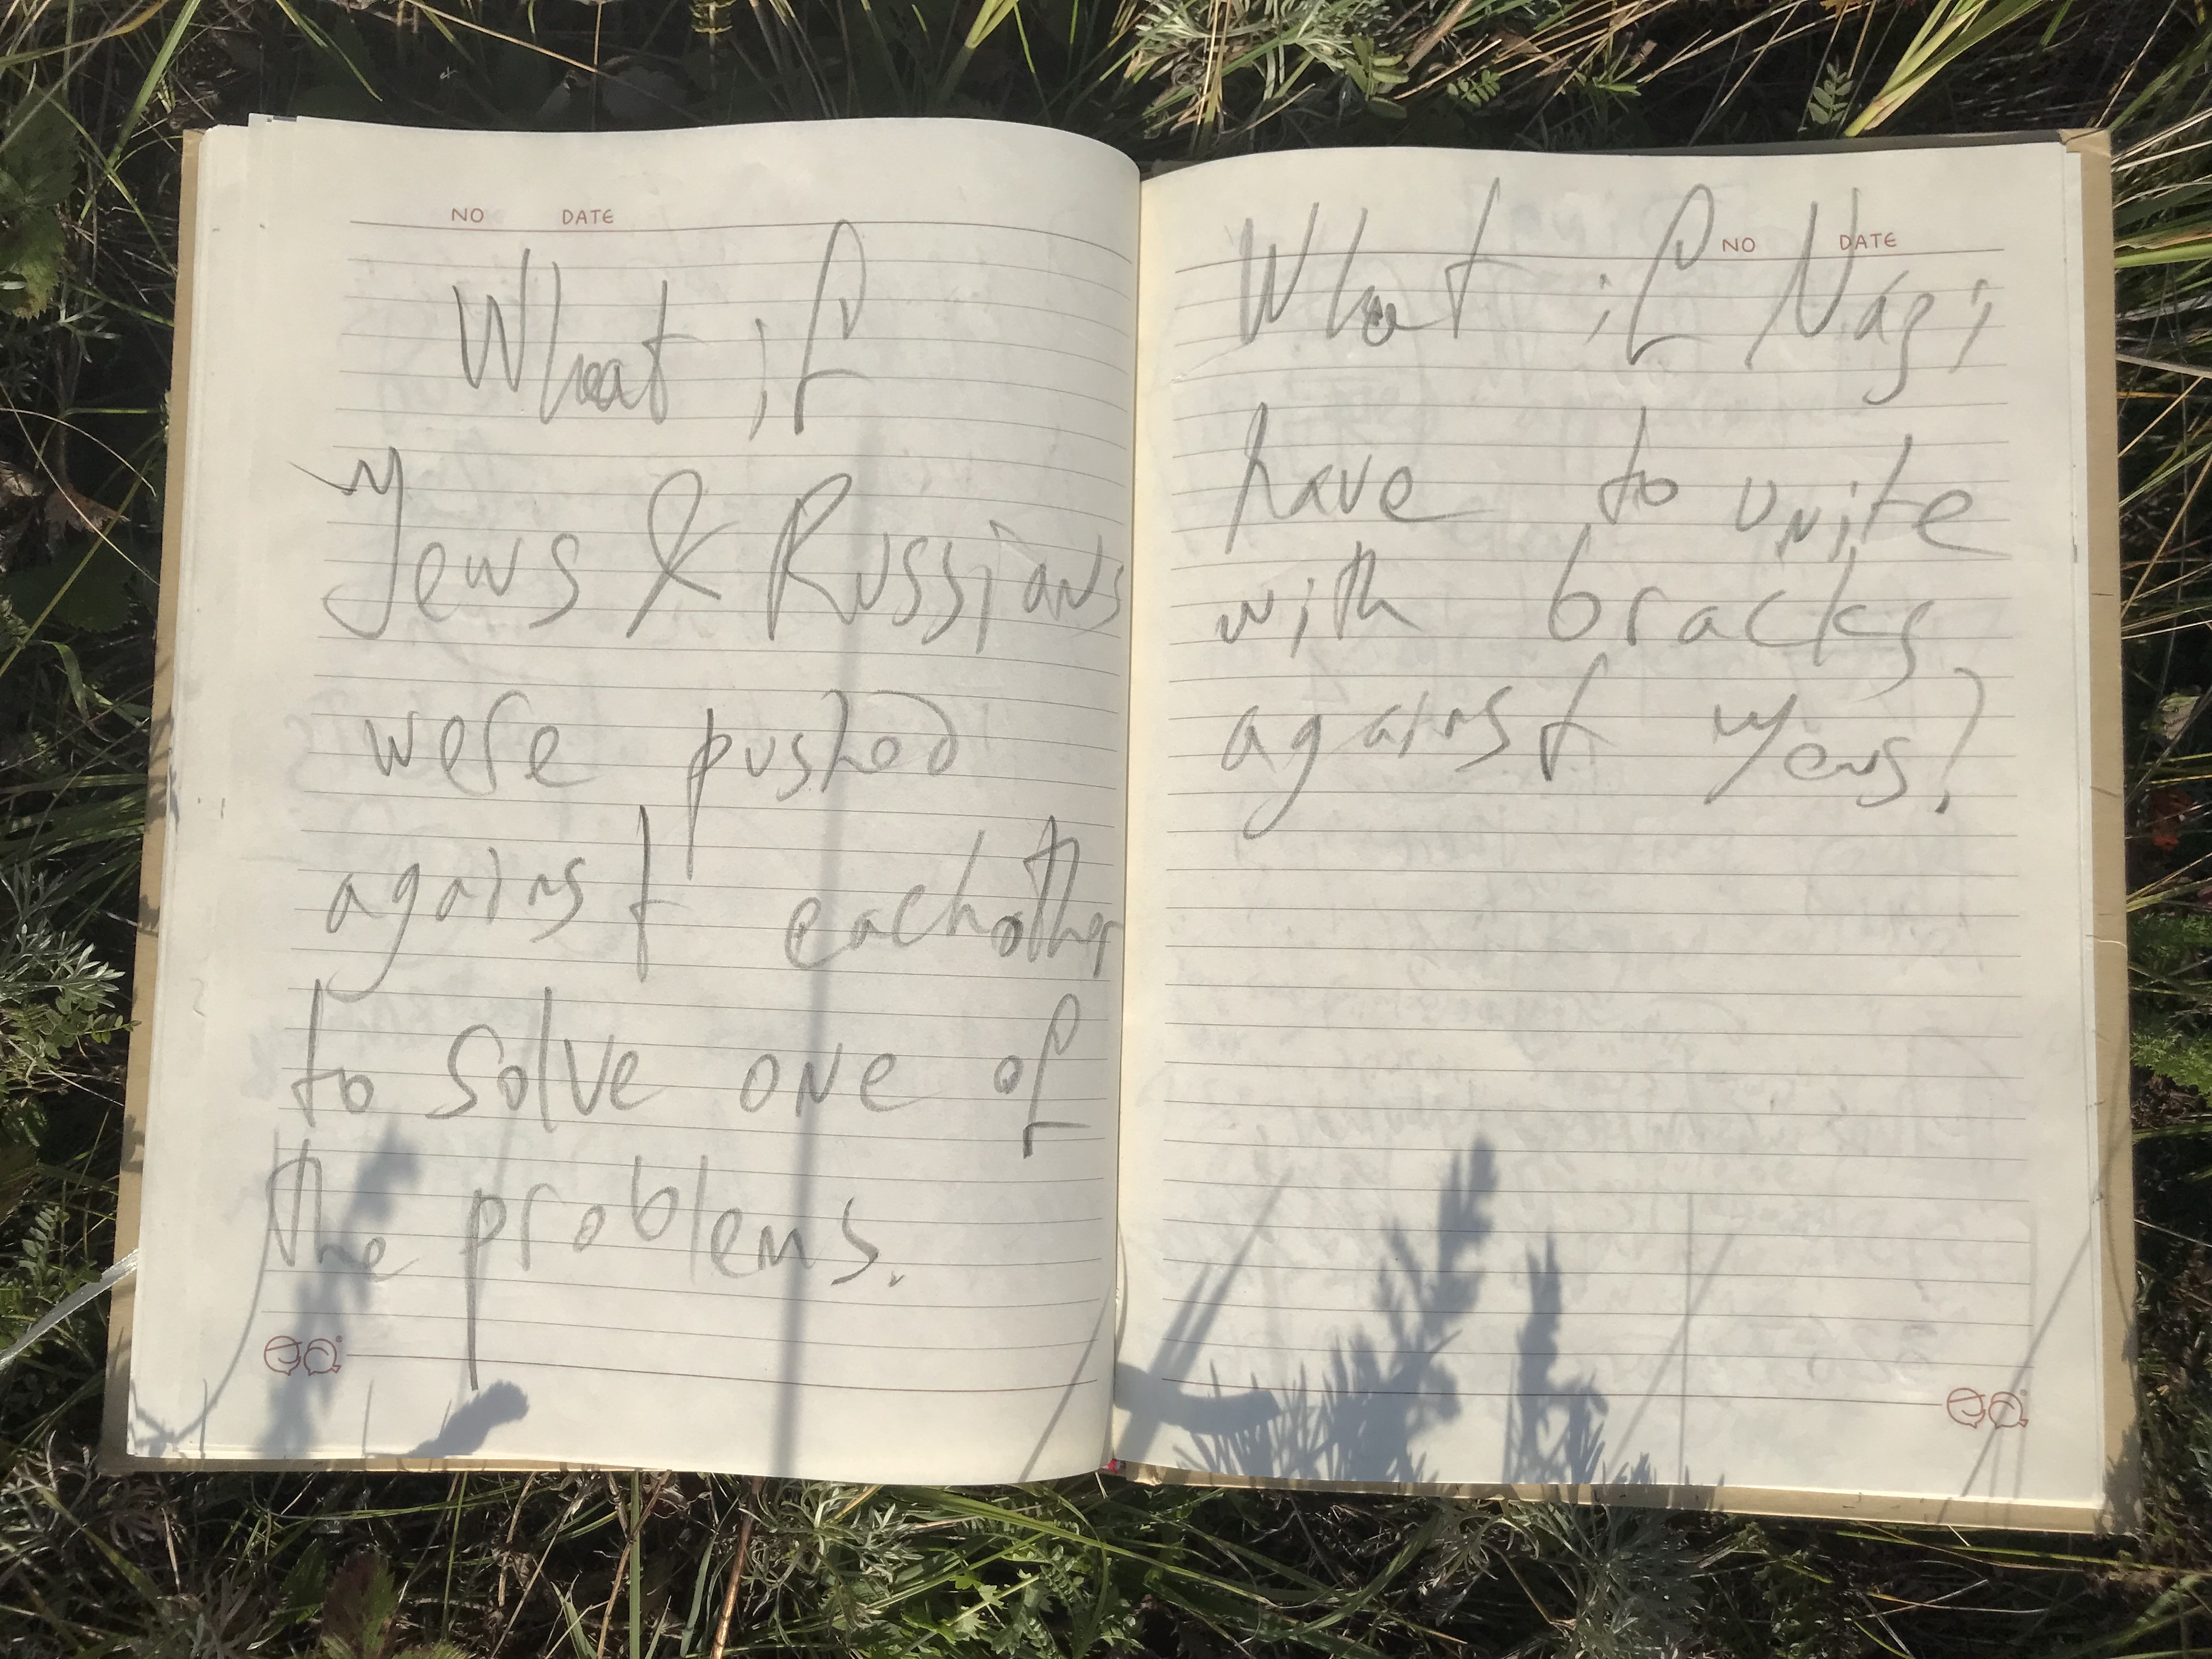 NO DATE
What if
Jews & Russians
were pushed
against eachother
to solve one of
the problems.
NO DATE
What if Nazi
have to unite
with bracks
against